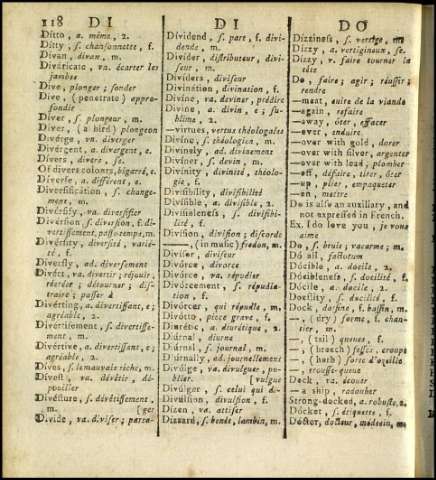 118 DI DI DO
Ditto, a. même, 2.
Ditty, s. chansonnette, f.
Divan, divan, m.
Divaricate, va. écarter les
jambes
Dive, plonger; sonder
Dive, (penetrate) appro-
fondir
Diver, s. plongeur, m.
Diver, (a bird) plongeon
Diverge, vn. diverger
Divergent, a. divergent, e.
Divers, divers, se.
Of divers colours, bigarré, e.
Diverse, a. différent, e.
Diversification, s. change-
ment, m.
Diversify, va. diversifier
Diversion, s. diversion, f. di-
vertissement, passe-temps, m.
Diversity, diversité, varié-
té, f.
Diversly, ad. diversement
Divert, va. divertir; réjouir;
récréer; détourner; dis-
traire; passer
Diverting, a. divertissant, e;
agréable, 2.
Divertisement, s. divertisse-
ment, m.
Divertive, a. divertissant, e;
agréable, 2.
Dives, s. le mauvais riche, m.
Divest, va. dévêtir, dé-
pouiller
Divesture, s. dévêtissement,
m.
Divide, va. diviser; parta-
(ger
Dividend, s. part, f. divi-
dende, m.
Divider, distributeur, divi-
seur, m.
Dividers, diviseur
Divination, divination, f.
Divine, va. deviner, prédire
Divine, a. divin, e; su-
blime, 2.
—virtues, vertus théologales
Divine, s. théologien, m.
Divinely, ad. divinement
Diviner, s. devin, m.
Divinity, divinité, théolo-
gie, f.
Divisibility, divisibilité
Divisible, a. divisible, 2.
Divisibleness, s. divisibi-
lité, f.
Division, division, f; discorde
——, (in music) fredon, m.
Divisor, diviseur
Divorce, divorce
Divorce, va. répudier
Divorcement, s. répudia-
tion, f.
Divorcer, qui répudie, m.
Divotto, picce grave, f.
Diuretic, a. diurétique, 2.
Diurnal, diurne
Diurnal, s. journal, m.
Diurnally, ad. journellement
Divulge, va. divulguer; pu-
blier. (vulgue
Divulger, s. celui qui di-
Divulsion, divulsion, f.
Dizen, va. attifer
Dizzard, s. benêt, lambin, m.
Dizziness, s. vertige, m.
Dizzy, a. vertigineux, se.
Dizzy, v. faire tourner la
tête
Do, faire; agir; réussir;
rendre
—meat, cuire de la viande
—again, refaire
—away, ôter, effacer
—over, enduire
—over with gold, dorer
—over with silver, argenter
—over with lead, plomber
—off, défaire, tirer, ôter
—up, plier, empaqueter
—on, mettre
Do is also an auxiliary, and
not expressed in French.
Ex. I do love you, je vous
aime
Do, s. bruit; vacarme; m.
Do all, factotum
Docible, a. docile, 2.
Docibleness, s. docilité, f.
Docile, a. docile, 2.
Docility, s. docilité, f.
Dock, darsine, f. bassin, m.
—, (dry) forme, f. chan-
tier, m.
—, (tail) queue, f.
—, (breech) fesses, croupe
—, (herb) sorte d'oseille
—, trousse-queue
Dock, va. écouer
—a ship, radouber
Strong-docked, a. robuste, 2.
Docket, s. étiquette, f.
Doctor, docteur, médecin, m.